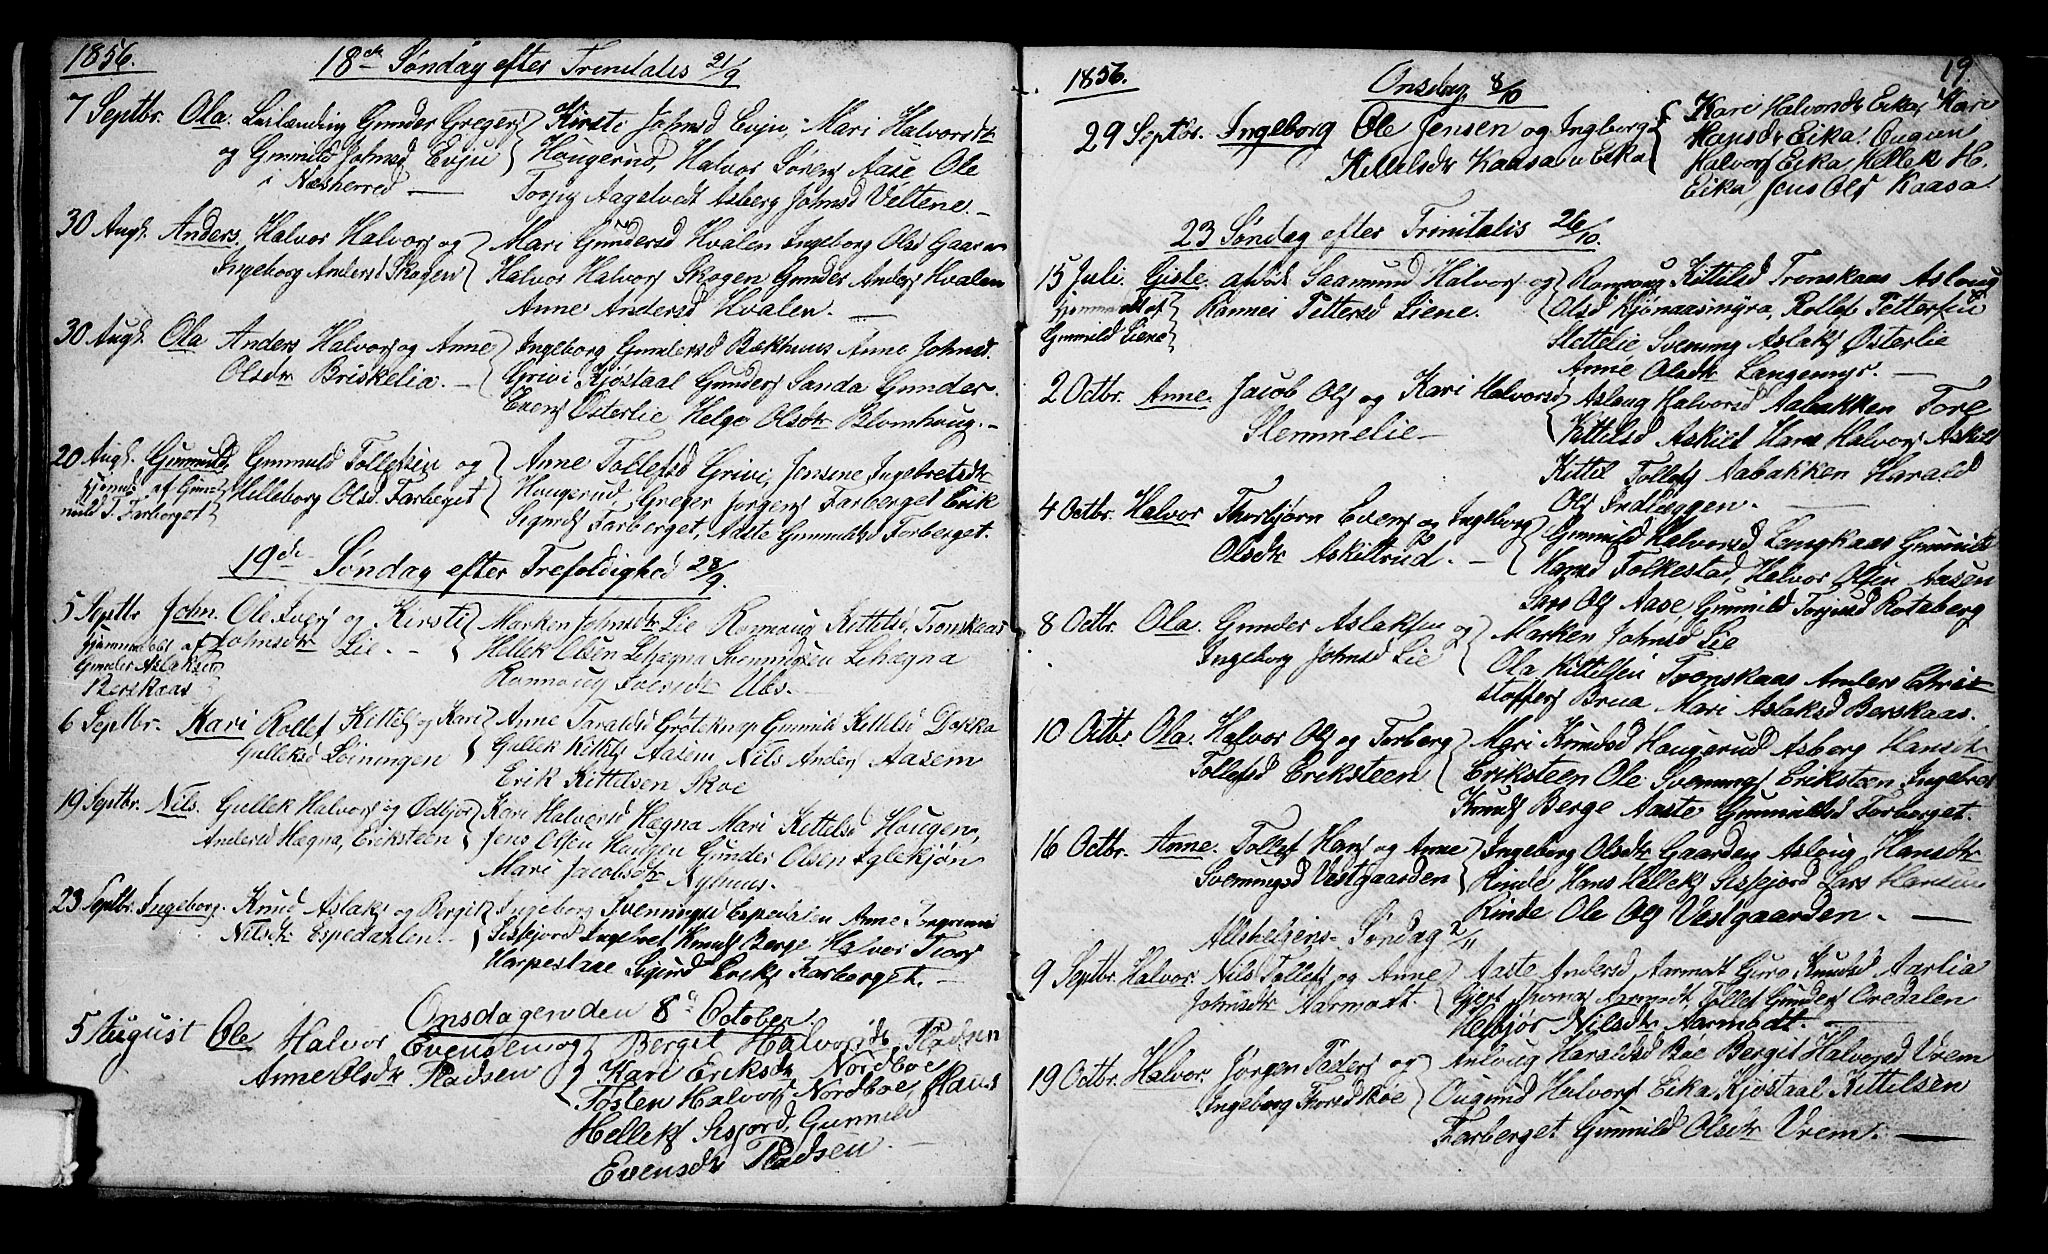 1856.
18de Søndag efter Trinitatis 21/9
7 Septbr. Ola. Leilænding Gunder Gregers
og Gunnild Johnsd Evju
i Næsherred —
Kirsti Johnsd Evju, Mari Halvorsdtr
Hougerud, Halvor Sørens Aase Ole
Torjus Aagetvedt Asberg Johnsd Veltene. —
30 Augt. Anders. Halvor Halvors og
Ingeborg Andersd Skogen
Mari Gundersd Hvalen Ingeborg Olsd Gaara
Halvor Halvors Skogen Gunder Anders Hvalen
Anne Andersd Hvalen. —
30 Augt. Ola Anders Halvors og Anne
Olsdtr Briskelia. —
Ingeborg Gundersd Bækhuus Anne Johnsd.
Grivi Kjøstaal Gunders Sanda Gunder
Evens Østerlie Helge Olsdtr Blomhaug. —
20 Augt. Gunnuld Gunnuld Tollefsen og
Hjemmed. af Gun- Helleborg Olsd. Farberget
nuld T. Farberget
Anne Tollefsd Grivi, Jensine Ingebretsdtr
Hougerud, Greger Jørgens Farberget Erik
Sigurds Farberget, Aaste Gunnuldsd Farberget.
19de Søndag efter Trefoldighed 28/9.
5 Septbr John. Ole Ivers og Kirsti
Hjemmedøbt af Johnsdtr Lie. —
Gunder Aslaksen
Berskaas
Marken Johnsdtr Lie Ronnoug Kittelsd. Tronskaas
Hellek Olsen Lehægna Svenningsen Lehægna
Ronnoug Iversdtr Ubs. —
6 Septbr. Kari Rollef Kittels og Kari
Gulleksd Løiningen
Anne Taraldsd Grøteknap Gunnild Kittelsd Dokka
Gullek Kittels Aasem Nils Anders Aasem
Erik Kittelsen Skoe
19 Septbr. Nils. Gullek Halvors og Ødbjør
Andersd Hægna, Eriksteen
Kari Halvorsd Hægna Mari Kittelsd Hougen,
Jens Olsen Haugen Gunder Olsen Iglekjøn
Mari Jacobsdtr Nyhuus. —
23 Septbr. Ingeborg. Knud Aslaks og Bergit
Nilsdtr Espedahlen. —
Ingeborg Sveningsd Espedalen Anne
Sisjord Ingebret Knuds Berge Halvor Tiors
Harpestaae Sigurd Eriks Farberget. —
Onsdagen den 8de October.
5 August Ole Halvor Evensen og
Anne Olsdtr Pladsen
Bergit Halvorsdtr Pladsen
Kari Eriksdtr Nordboe
Tosten Halvors Nordboe, Hans
Helleks Sisjord, Gunnild
Evensdtr Pladsen. —
1856. 19
Onsdag 8/10
29 Septbr. Ingeborg Ole Jensen og Ingborg
Kittilsdtr Kaasa u Eika
Kari Halvorsdtr Eika, Kari
Hansdtr Eika. Ougun
Halvors Eika Hellek H.
Eika Jens Ols Kaasa.
23 Søndag efter Trinitatis 26/10.
15 Juli. Gisle. afdøde Saamund Halvors og
Hjemmedøbt af Rannei Pettersd Liene.
Gunnild Liene
Ronnoug Kittelsd Tronskaas Aslaug
Olsd Kjønaasmyra, Rollef Pettersen
Slettelie Svening Aslaks Østerlie
Anne Olsdtr Langemyr. —
2 Octbr. Anne. Jacob Ols og Kari Halvorsd
Slemmelie —
Aslaug Halvorsd Aabakken Tore
Kittelsd Askilt Hans Halvors Askilt
Kittil Tollefs Aabakken Harald
Ols Indlæggen. —
4 Octbr. Halvor Thorbjørn Evens og Ingeborg
Olsdtr Askiltrud. —
Gunnild Halvorsd Langkaas Gunnild
Hansd Folkestad, Halvor Olsen Aasen
Lars Ols Aase, Gunnild Torjusd Rotaberg
8 Octbr. Ola. Gunder Aslaksen og
Ingeborg Johnsd Lie
Marken Johnsd Lie
Ola Kittilsen Tronskaas Anders Chri-
stoffers Brua Mari Aslaksd Berskaas.
10 Octbr Ola. Halvor Ols og Torberg
Tollefsd Eriksteen
Mari Knudsd Hougerud Asberg Hansdtr
Eriksteen Ole Svennings Eriksteen Ingebret
Knuds Berge Aaste Gunnuldsd Farberget.
16 Octbr. Anne. Tollef Hans og Anne
Sveningsd Vestgaarden
Ingeborg Olsdtr Gaarden Aslaug Hansdtr
Rinde Hans Helleks Sisjord Lars Hansen
Rinde Ole Ols Vestgaarden. —
Allehelgens-Søndag 2/11
9 Septbr. Halvor. Nils Tollefs og Anne
Johnsdtr Aarmodt.
Aaste Andersd Aarmodt Guro Knudsd Aarlia
Gjest Thomas Aarmodt Tollef Gunders Oredalen
Helljør Nilsdtr Aarmodt. —
19 Octbr. Halvor. Jørgen Peders og
Ingeborg Thorsd Bøe
Anlaug Haraldsd Bøe Bergit Halvorsd Vrem
Ougund Halvors Eika Kjøstaal Kittilsen
Farberget Gunnild Olsdtr Vrem. —